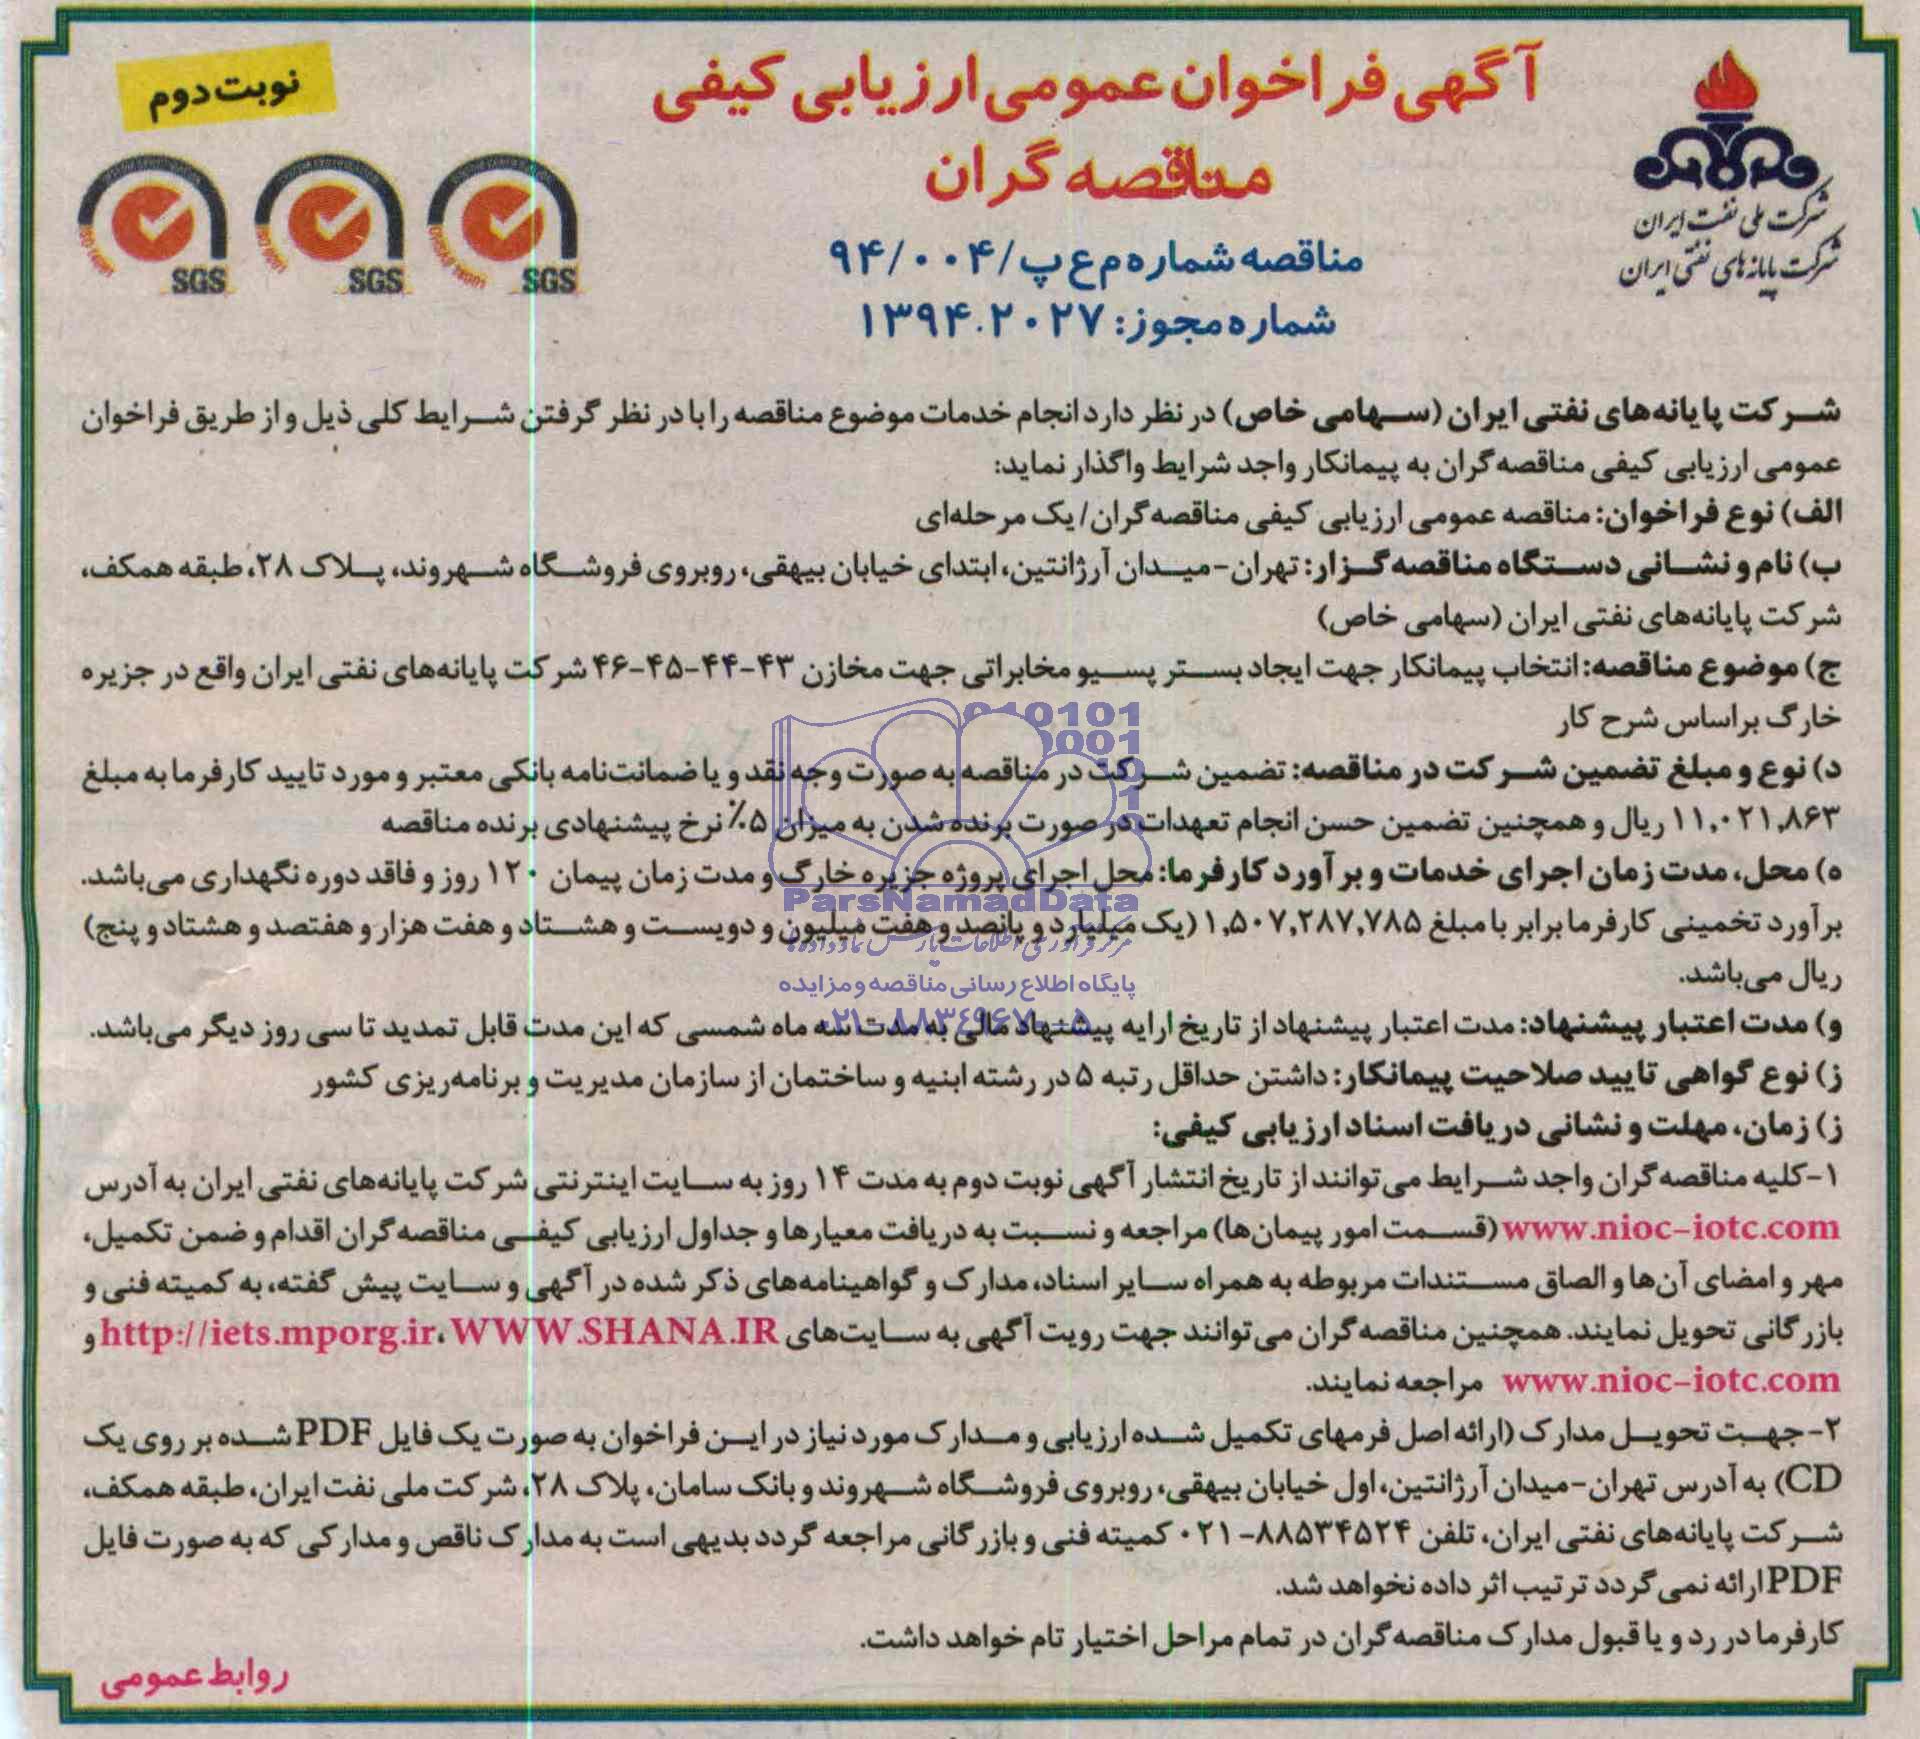 نوبت دوم
آگهی فراخوان عمومی ارزیابی کیفی
مناقصه گران
شرکت ملی نفت ایران
شرکت پایانه های نفتی ایران
SGS
SGS
SGS
مناقصه شماره م ع پ/۹۴/۰۰۴
شماره مجوز: ۱۳۹۴.۲۰۲۷
شرکت پایانه‌های نفتی ایران (سهامی خاص) در نظر دارد انجام خدمات موضوع مناقصه را با در نظر گرفتن شرایط کلی ذیل و از طریق فراخوان
عمومی ارزیابی کیفی مناقصه گران به پیمانکار واجد شرایط واگذار نماید:
الف) نوع فراخوان: مناقصه عمومی ارزیابی کیفی مناقصه گران/ یک مرحله‌ای
ب) نام و نشانی دستگاه مناقصه گزار: تهران-میدان آرژانتین، ابتدای خیابان بیهقی، روبروی فروشگاه شهروند، پلاک ۲۸، طبقه همکف،
شرکت پایانه‌های نفتی ایران (سهامی خاص)
ج) موضوع مناقصه: انتخاب پیمانکار جهت ایجاد بستر پسیو مخابراتی جهت مخازن ۴۳-۴۴-۴۵-۴۶ شرکت پایانه‌های نفتی ایران واقع در جزیره
خارگ براساس شرح کار
د) نوع و مبلغ تضمین شرکت در مناقصه: تضمین شرکت در مناقصه به صورت وجه نقد و یا ضمانت‌نامه بانکی معتبر و مورد تایید کارفرما به مبلغ
۱۱,۰۲۱,۸۶۳ ریال و همچنین تضمین حسن انجام تعهدات در صورت برنده شدن به میزان ۵٪ نرخ پیشنهادی برنده مناقصه
ه) محل، مدت زمان اجرای خدمات و برآورد کارفرما: محل اجرای پروژه جزیره خارگ و مدت زمان پیمان ۱۲۰ روز و فاقد دوره نگهداری می‌باشد.
برآورد تخمینی کارفرما برابر با مبلغ ۱,۵۰۷,۲۸۷,۷۸۵ (یک میلیارد و پانصد و هفت میلیون و دویست و هشتاد و هفت هزار و هفتصد و هشتاد و پنج)
ریال می‌باشد.
و) مدت اعتبار پیشنهاد: مدت اعتبار پیشنهاد از تاریخ ارایه پیشنهاد مالی به مدت سه ماه شمسی که این مدت قابل تمدید تا سی روز دیگر می‌باشد.
ز) نوع گواهی تایید صلاحیت پیمانکار: داشتن حداقل رتبه ۵ در رشته ابنیه و ساختمان از سازمان مدیریت و برنامه‌ریزی کشور
ز) زمان، مهلت و نشانی دریافت اسناد ارزیابی کیفی:
۱-کلیه مناقصه گران واجد شرایط می‌توانند از تاریخ انتشار آگهی نوبت دوم به مدت ۱۴ روز به سایت اینترنتی شرکت پایانه‌های نفتی ایران به آدرس
www.nioc-iotc.com (قسمت امور پیمان‌ها) مراجعه و نسبت به دریافت معیارها و جداول ارزیابی کیفی مناقصه گران اقدام و ضمن تکمیل،
مهر و امضای آن‌ها و الصاق مستندات مربوطه به همراه سایر اسناد، مدارک و گواهینامه‌های ذکر شده در آگهی و سایت پیش گفته، به کمیته فنی و
بازرگانی تحویل نمایند. همچنین مناقصه گران می‌توانند جهت رویت آگهی به سایت‌های http://iets.mporg.ir، WWW.SHANA.IR و
www.nioc-iotc.com مراجعه نمایند.
۲-جهت تحویل مدارک (ارائه اصل فرمهای تکمیل شده ارزیابی و مدارک مورد نیاز در این فراخوان به صورت یک فایل PDF شده بر روی یک
CD) به آدرس تهران-میدان آرژانتین، اول خیابان بیهقی، روبروی فروشگاه شهروند و بانک سامان، پلاک ۲۸، شرکت ملی نفت ایران، طبقه همکف،
شرکت پایانه‌های نفتی ایران، تلفن ۸۸۵۳۴۵۲۴-۰۲۱ کمیته فنی و بازرگانی مراجعه گردد بدیهی است به مدارک ناقص و مدارکی که به صورت فایل
PDF ارائه نمی گردد ترتیب اثر داده نخواهد شد.
کارفرما در رد و یا قبول مدارک مناقصه گران در تمام مراحل اختیار تام خواهد داشت.
روابط عمومی
ParsNamadData
پایگاه اطلاع رسانی مناقصه و مزایده
۰۲۱-۸۸۳۴۹۶۷۰-۵